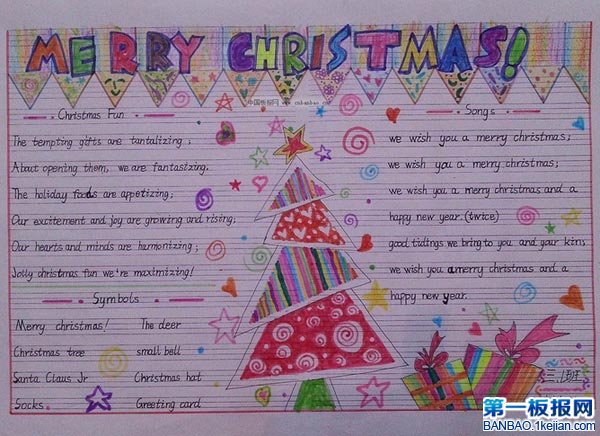 MERRY CHRISTMAS!
中国板报网 www.cnbanbao.com
Christmas Fun
The tempting gifts are tantalizing;
About opening them, we are fantasizing.
The holiday foods are appetizing;
Our excitement and joy are growing and rising;
Our hearts and minds are harmonizing;
Jolly christmas fun we're maximizing!
Symbols
Merry christmas! The deer
Christmas tree small bell
Santa Claus Jr Christmas hat
Socks Greeting card
Songs
we wish you a merry christmas;
we wish you a merry christmas;
we wish you a merry christmas and a
happy new year.(twice)
good tidings we bring to you and your kin;
we wish you a merry christmas and a
happy new year.
第一板报网
BANBAO.1kejian.com